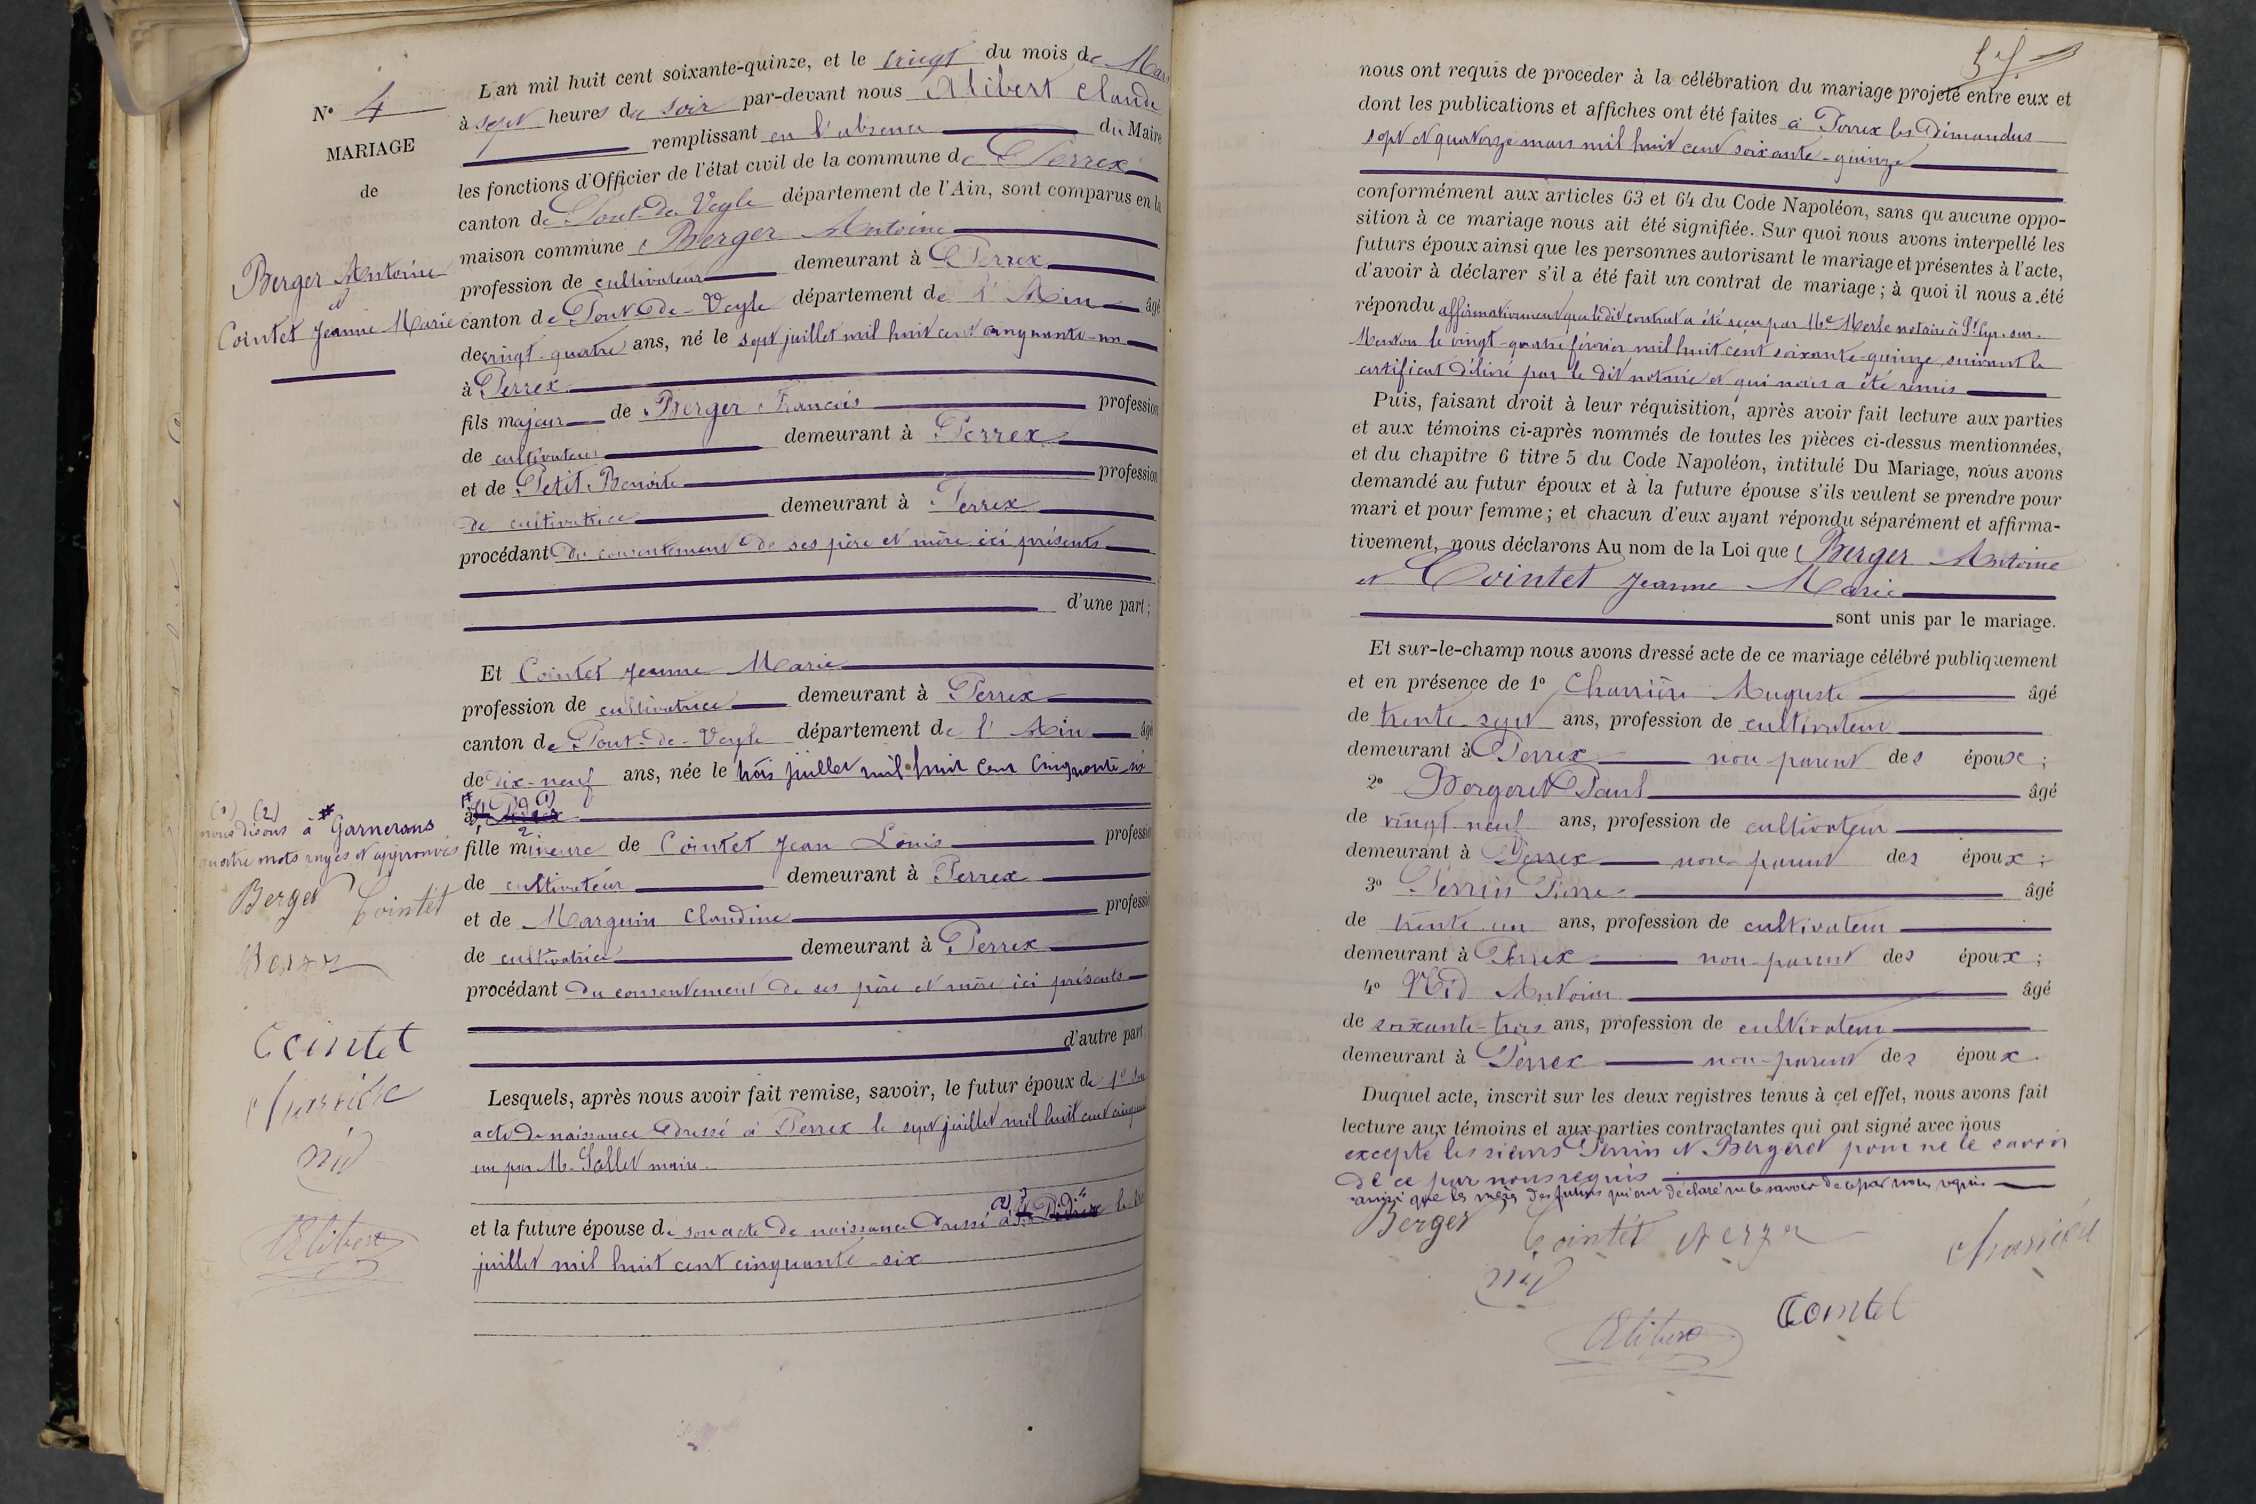 N° 4
MARIAGE
de
Berger Antoine
et
Cointet Jeanne Marie
L'an mil huit cent soixante-quinze, et le vingt du mois de Mars
à sept heures du soir par-devant nous Alibert Claude
remplissant en l'absence du Maire
les fonctions d'Officier de l'état civil de la commune de Perrex
canton de Pont-de-Veyle département de l'Ain, sont comparus en la
maison commune Berger Antoine
profession de cultivateur demeurant à Perrex
canton de Pont-de-Veyle département de l'Ain âgé
de vingt-quatre ans, né le sept juillet mil huit cent cinquante-un
à Perrex
fils majeur de Berger François profession
de cultivateur demeurant à Perrex
et de Petit Benoite profession
de cultivatrice demeurant à Perrex
procédant du consentement de ses père et mère ici présents
d'une part;
Et Cointet Jeanne Marie
profession de cultivatrice demeurant à Perrex
canton de Pont-de-Veyle département de l'Ain âgé
de dix-neuf ans, née le trois juillet mil huit cent cinquante-six
à St Didier (1)
fille mineure de Cointet Jean Louis profession
de cultivateur demeurant à Perrex
et de Marguin Claudine profession
de cultivatrice demeurant à Perrex
procédant du consentement de ses père et mère ici présents
d'autre part.
Lesquels, après nous avoir fait remise, savoir, le futur époux de 1° son
acte de naissance dressé à Perrex le sept juillet mil huit cent cinquante
un par M. Sallet maire
et la future épouse de son acte de naissance dressé à (2) St Didier le trois
juillet mil huit cent cinquante-six
(1) (2)
nous disons à Garnerans
quatre mots rayés et approuvés
Berger Cointet
Cointet
Charrière
nid
Alibert
57
nous ont requis de proceder à la célébration du mariage projeté entre eux et
dont les publications et affiches ont été faites à Perrex les Dimanches
sept et quatorze mars mil huit cent soixante-quinze
conformément aux articles 63 et 64 du Code Napoléon, sans qu'aucune oppo-
sition à ce mariage nous ait été signifiée. Sur quoi nous avons interpellé les
futurs époux ainsi que les personnes autorisant le mariage et présentes à l'acte,
d'avoir à déclarer s'il a été fait un contrat de mariage; à quoi il nous a été
répondu affirmativement que ledit contrat a été reçu par Me Merle notaire à St Cyr-sur-
Menthon le vingt-quatre février mil huit cent soixante-quinze suivant le
certificat délivré par le dit notaire et qui nous a été remis
Puis, faisant droit à leur réquisition, après avoir fait lecture aux parties
et aux témoins ci-après nommés de toutes les pièces ci-dessus mentionnées,
et du chapitre 6 titre 5 du Code Napoléon, intitulé Du Mariage, nous avons
demandé au futur époux et à la future épouse s'ils veulent se prendre pour
mari et pour femme; et chacun d'eux ayant répondu séparément et affirma-
tivement, nous déclarons Au nom de la Loi que Berger Antoine
et Cointet Jeanne Marie
sont unis par le mariage.
Et sur-le-champ nous avons dressé acte de ce mariage célébré publiquement
et en présence de 1° Charrière Auguste âgé
de trente-sept ans, profession de cultivateur
demeurant à Perrex non-parent des époux;
2° Bergeret Paul âgé
de vingt-neuf ans, profession de cultivateur
demeurant à Perrex non-parent des époux;
3° Perrin Pierre âgé
de trente-un ans, profession de cultivateur
demeurant à Perrex non-parent des époux;
4° Nid Antoine âgé
de soixante-trois ans, profession de cultivateur
demeurant à Perrex non-parent des époux.
Duquel acte, inscrit sur les deux registres tenus à cet effet, nous avons fait
lecture aux témoins et aux parties contractantes qui ont signé avec nous
excepté les sieurs Perrin et Bergeret pour ne le savoir
de ce par nous requis
ainsi que les mères des futurs qui ont déclaré ne le savoir de ce par nous requis
Berger Cointet Charrière
nid
Cointet
Alibert